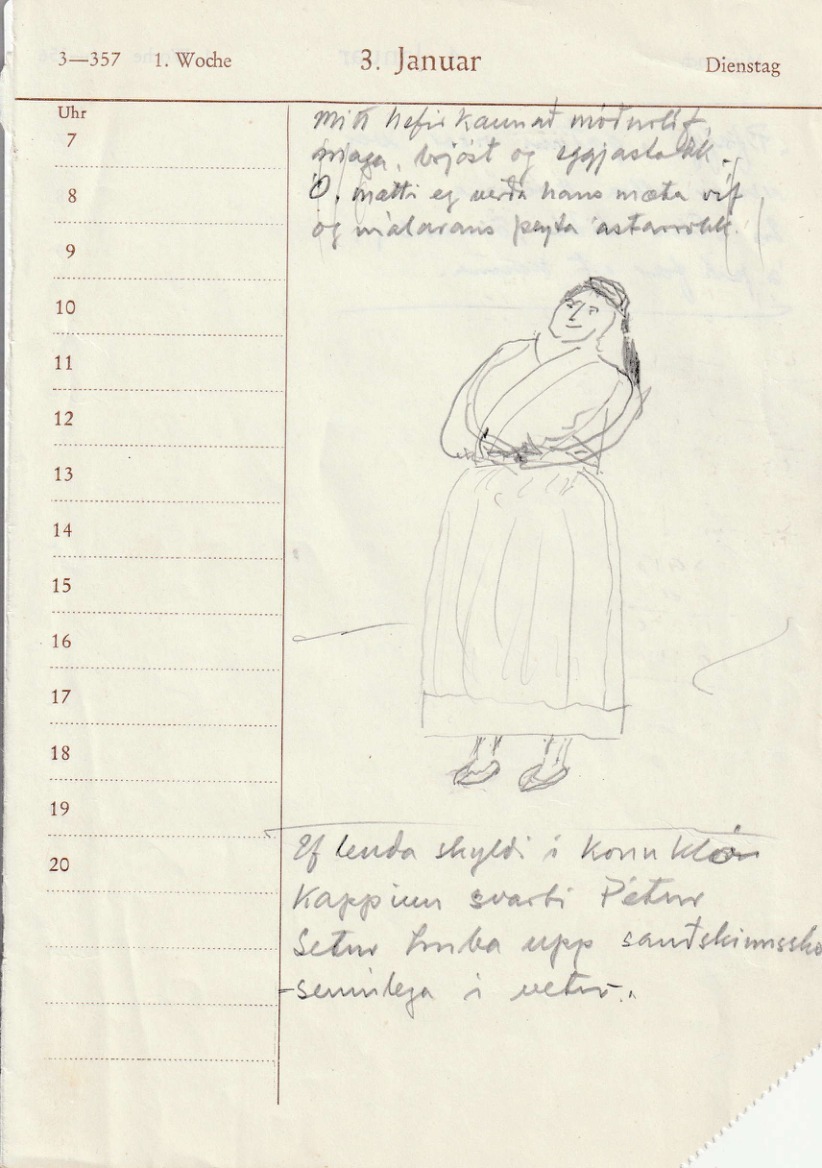 3—357 1. Woche 3. Januar Dienstag
Uhr
7
8
9
10
11
12
13
14
15
16
17
18
19
20
Mitt hefir kannað móðurlíf,
maga, brjóst og eggjastokk.
Ó, mætti eg verða hans mæta víf
og málarans þeyta ástarrokk.
Ef lenda skyldi í konu klór
Kappinn svarti Pétur
Setur Imba upp sauðskinnssko
-sennilega í vetur.